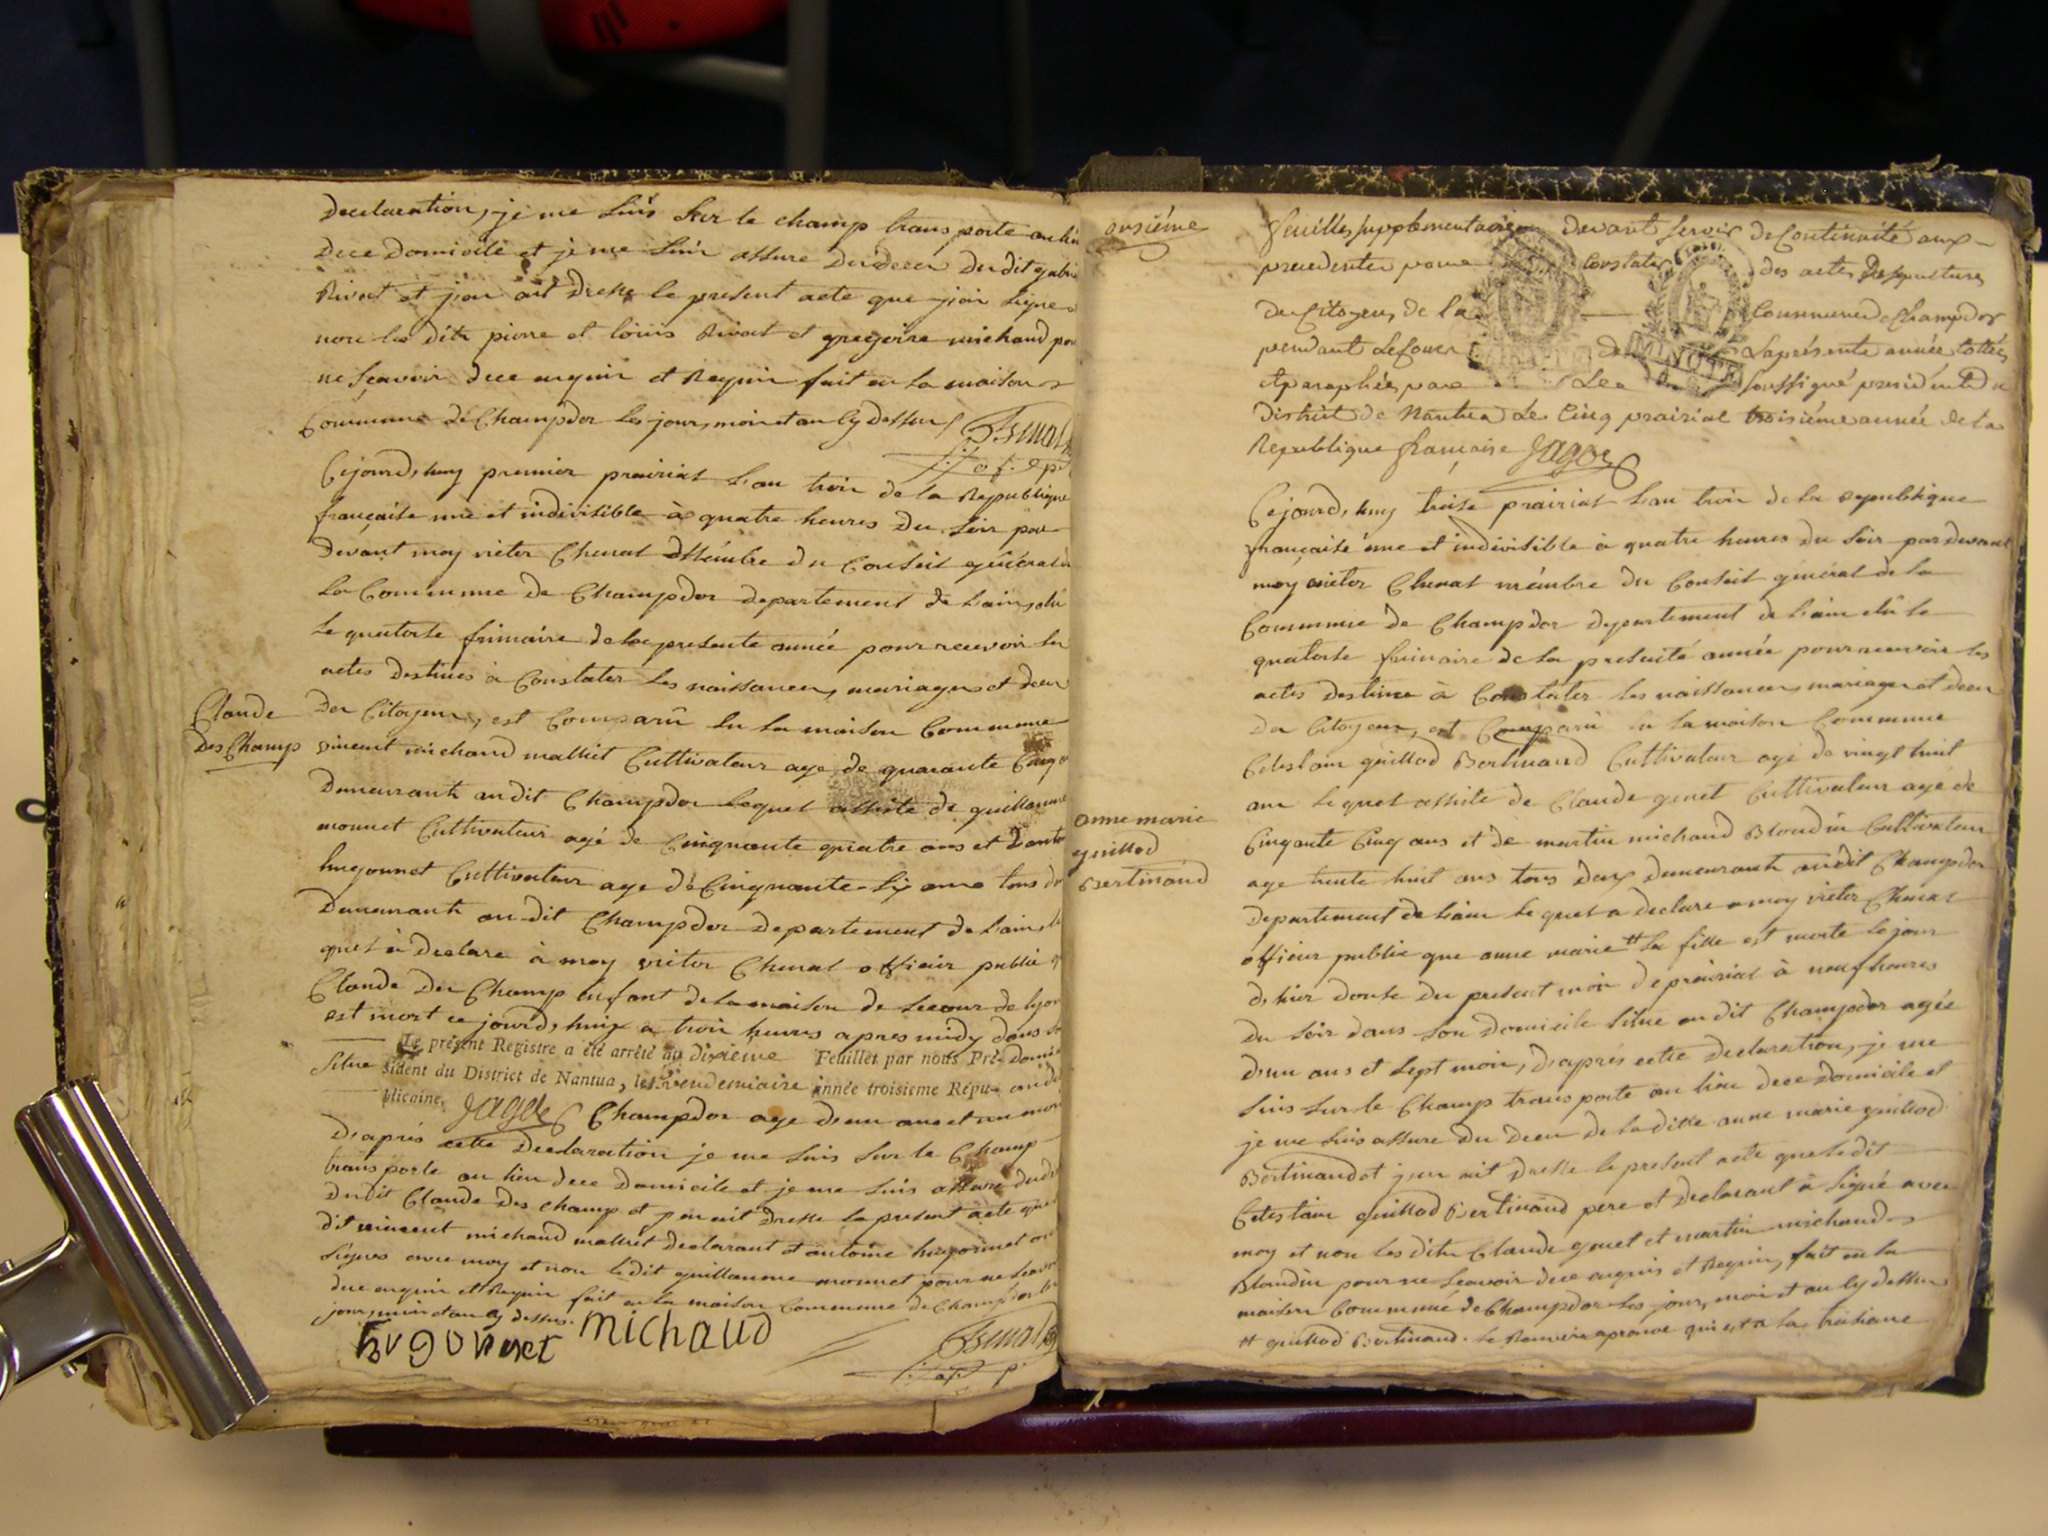 declaration, je me suis sur le champ transporté au lieu
de ce domicile et je me suis assuré du deces du dit gabriel
Rivat et j'en ait dressé le present acte que j'ai signé
non les dits pierre et louis Rivat et gregoire michaud pour
ne sçavoir de ce enquis et Requis fait en la maison
Commune de Champdor les jour, mois et an cy dessus
Cejourd,huy premier prairial L'an trois de la Republique
française une et indivisible à quatre heures du soir par
devant moy victor Chenat Membre du Conseil général de
la Commune de Champdor departement de L'ain, élu
le quatorse frimaire de la presente année pour recevoir les
actes destinés à Constater les naissances, mariages et deces
Claude
Des Champ
des Citoyens, est Comparû en la maison Commune
vincent michaud mallut Cultivateur age de quarante Cinq
Demeurant audit Champdor lequel assisté de guillaume
monnet Cultivateur agé de Cinquante quatre ans et d'antoine
hugonnet Cultivateur age de Cinquante-six ans tous deux
Demeurant au dit Champdor departement de L'ain, le
quel à declaré à moy victor Chenat officier public que
Claude Des Champ enfant de la maison de secour de lyon
est mort ce jourd,huy a trois heures apres midy dans son
Le présent Registre a été arrêté au dixieme Feuillet par nous Pré-
situé sident du District de Nantua, le vendemiaire année troisieme Répu-
blicaine. Jagot Champdor age d'un ans et un mois
D'apres cette Declaration je me suis sur le Champ
transporté au lieu de ce domicile et je me suis assuré du deces
Dudit Claude Des champ et j'en ait dressé le present acte que le
dit vincent michaud mallut declarant et antoine hugonnet ont
signés avec moy et non ledit guillaume monnet pour ne sçavoir
de ce enquis et Requis fait en la maison Commune de Champdor les
jour, mois et an cy dessus.
hugonnet michaud
onsiéme
feuilles supplementaires devant servir de Continuité aux
precedentes pour Constater des actes de sepulture
des Citoyens de la Commune de Champdor
pendant le cours de MINUTE la présente année cottées
et paraphées par soussigné president du
district de Nantua Le Cinq prairial troisiéme année de la
Republique française Jagot
Cejourd,huy treise prairial L'an trois de la republique
française une et indivisible à quatre heures du soir par devant
moy victor Chenat membre du Conseil général de la
Commune de Champdor departement de L'ain élû le
quatorse frimaire de la presente année pour recevoir les
actes destiné à Constater les naissances mariages et deces
des Citoyens, est Comparû en la maison Commune
Celestain guillod Bertinand Cultivateur agé de vingt huit
anne marie
guillod
Bertinand
ans lequel assisté de Claude genet Cultivateur agé de
Cinquante Cinq ans et de martin michaud Blondin Cultivateur
age trente huit ans tous deux demeurants audit Champdor
departement de L'ain lequel a declaré a moy victor Chenat
officier public que anne marie # sa fille est morte le jour
d,hier douse du present mois de prairial à neuf heures
du soir dans son domicile situé au dit Champdor agée
d'un ans et sept mois, d'aprés cette declaration, je me
suis sur le Champ transporté au lieu de ce domicile et
je me suis assuré du deces de la ditte anne marie guillod
Bertinand et j'en ait dressé le present acte que ledit
Celestain guillod Bertinand pere et declarant à signé avec
moy et non les dits Claude genet et martin michaud
Blondin pour ne sçavoir de ce enquis et Requis, fait en la
maison Commune de Champdor les jour, mois et an cy dessus
# guillod Bertinand. le Renvoi approuvé qui est a la treisiéme